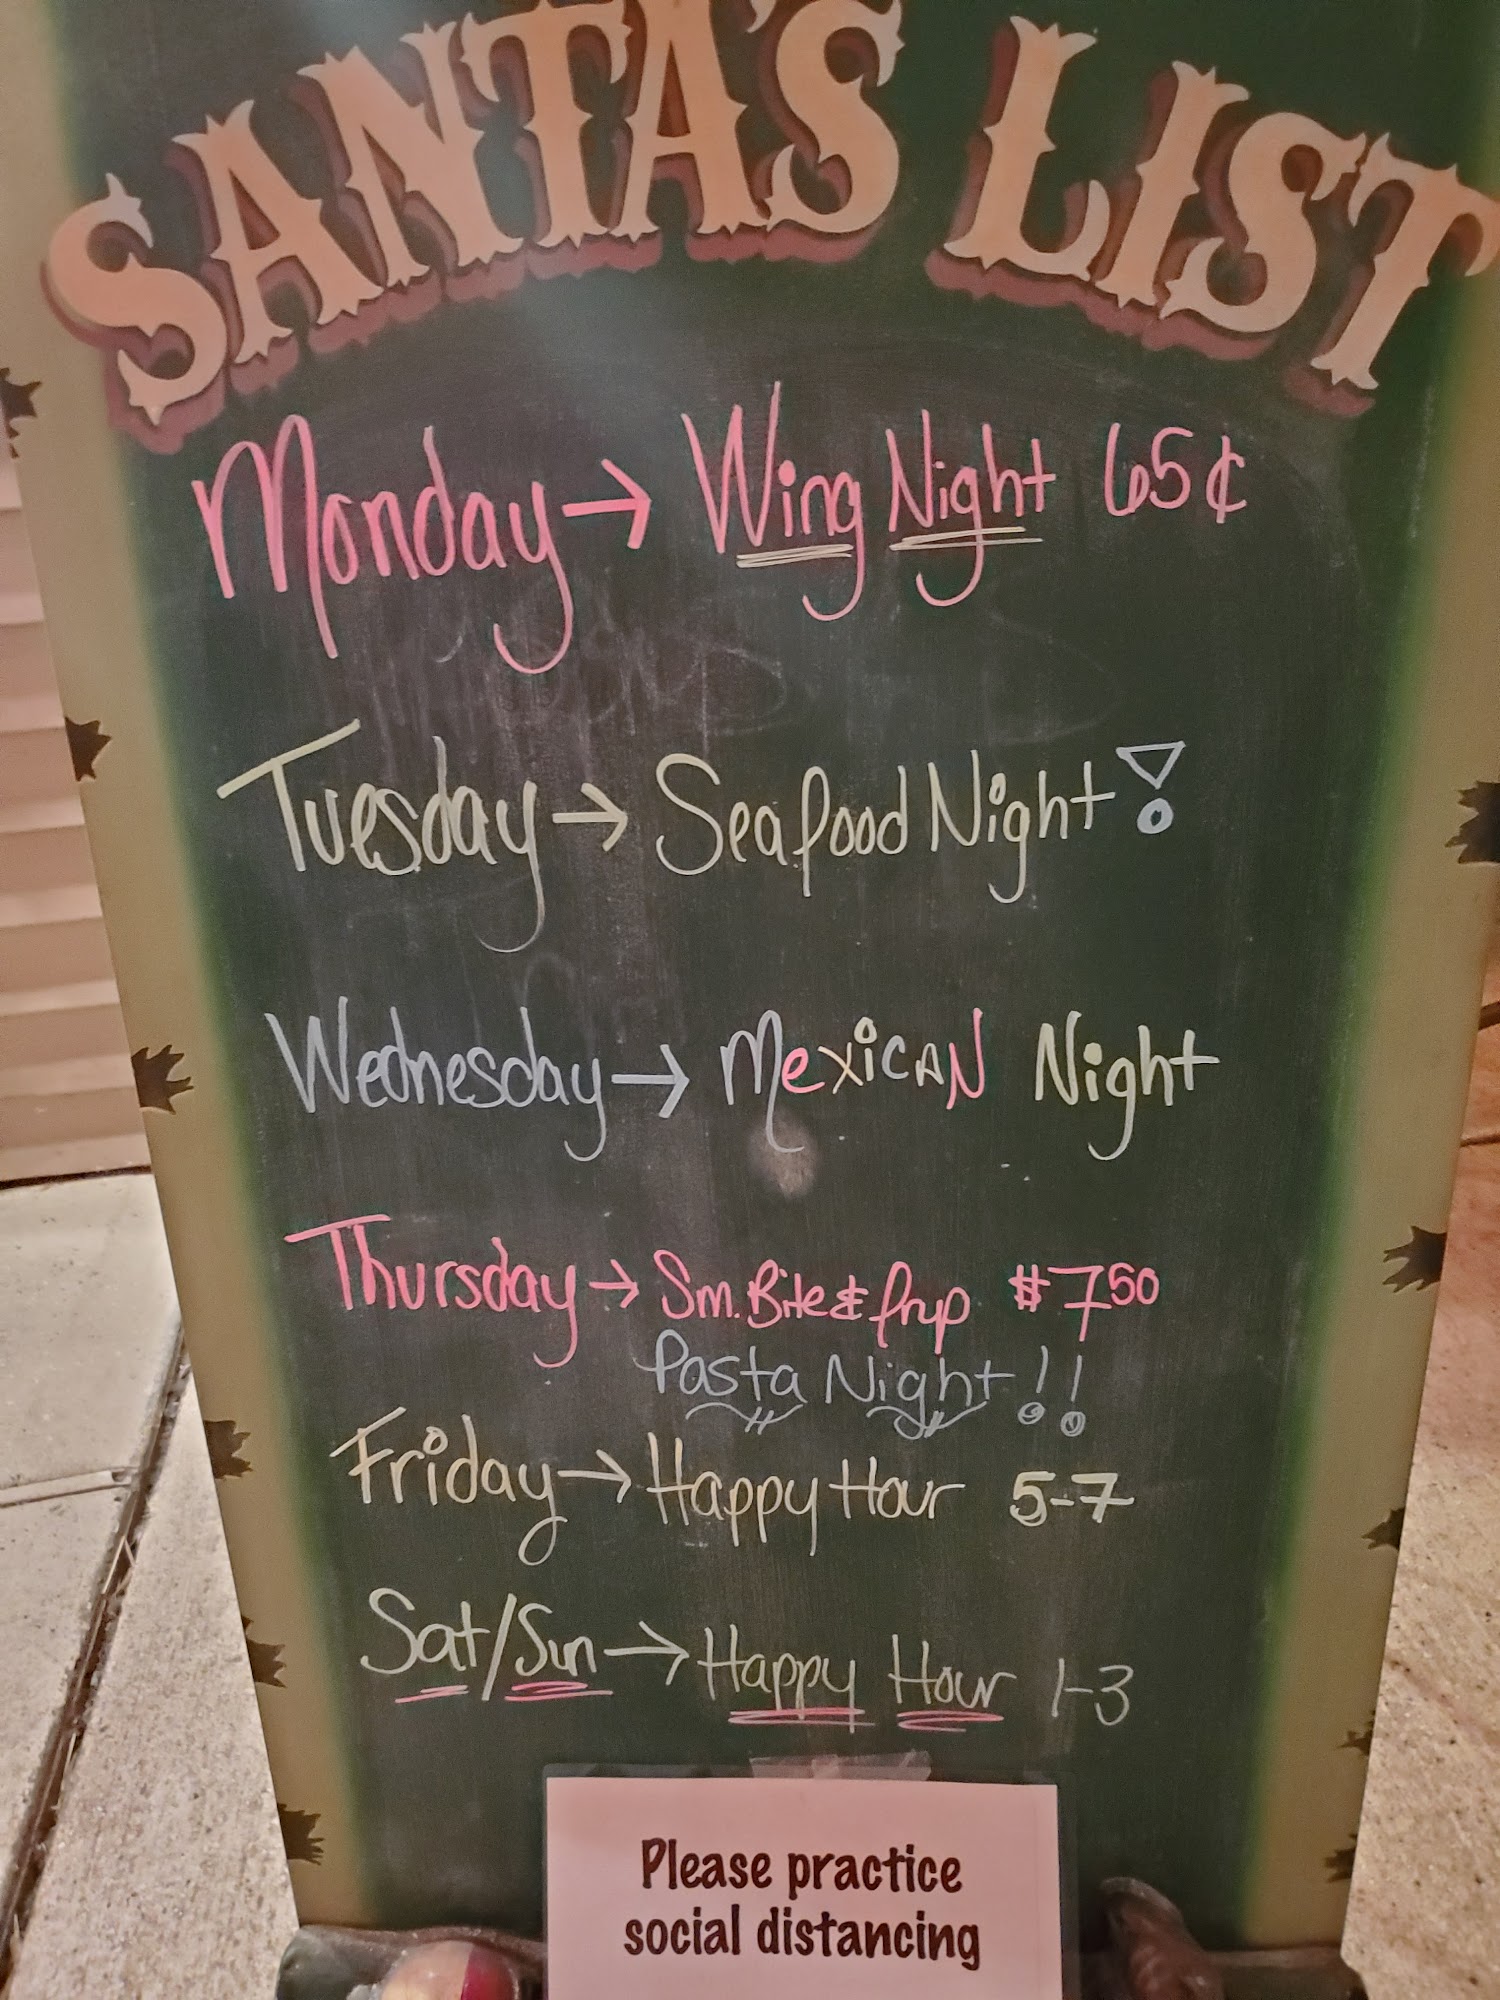 SANTA'S LIST
Monday → Wing Night 65¢
Tuesday → Seafood Night!
Wednesday → MexicAN Night
Thursday → Sm. Bite & Fryp $7.50
Pasta Night!!
Friday → Happy Hour 5-7
Sat/Sun → Happy Hour 1-3
Please practice
social distancing